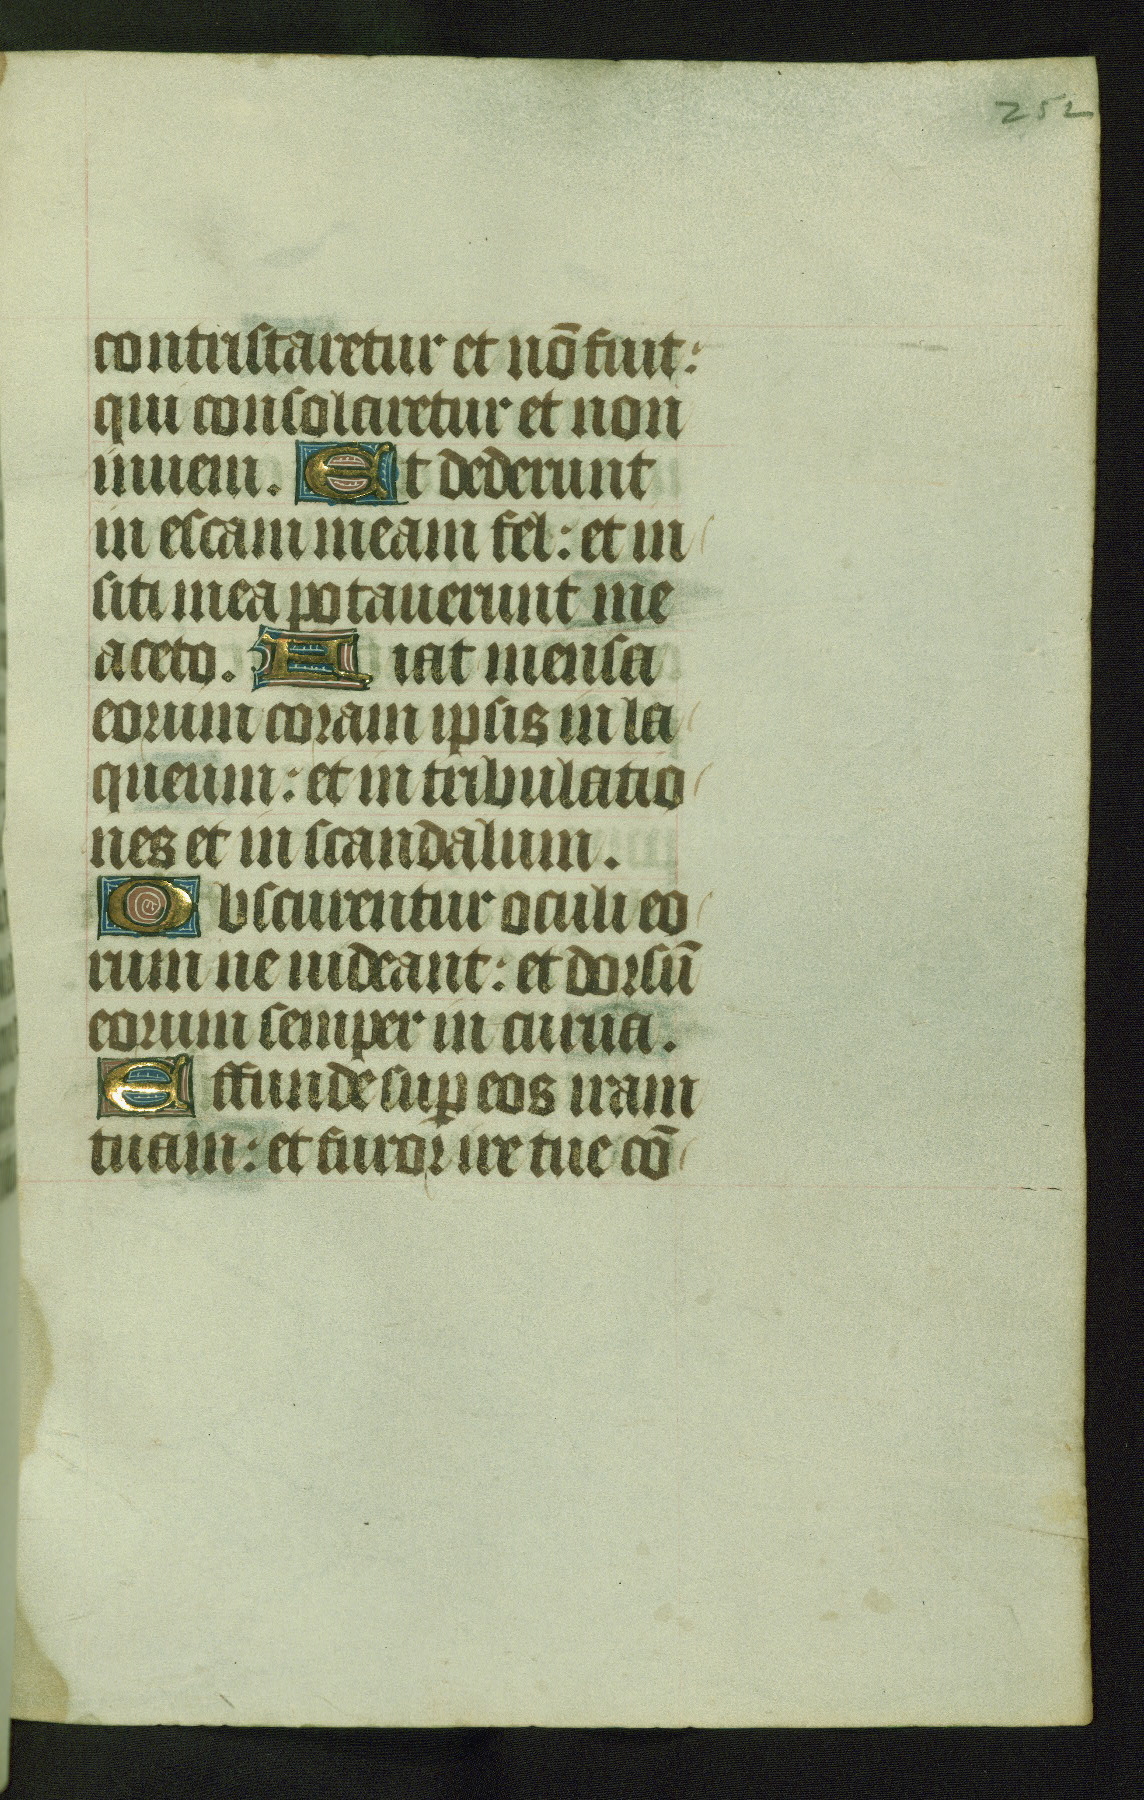 252
contristaretur et nō fuit:
qui consolaretur et non
inueni. Et dederunt
in escam meam fel: et in
siti mea potauerunt me
aceto. Fiat mensa
eorum coram ipsis in la
queum: et in tribulatio
nes et in scandalum.
Obscurentur oculi eo
rum ne uideant: et dorsū
eorum semper in curua.
Effunde suꝑ eos iram
tuam: et furor ire tue cō